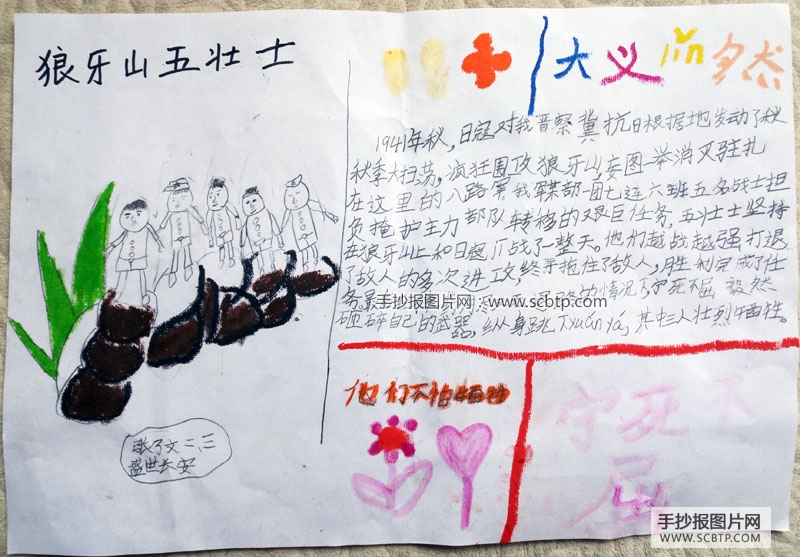 狼牙山五壮士
大义lin然
1941年秋，日寇对我晋察冀抗日根据地发动了秋
秋季大扫荡，疯狂围攻狼牙山，妄图一举消灭驻扎
在这里的八路军 我军某部一团七连六班五名战士担
负掩护主力部队转移的艰巨任务，五壮士坚持
在狼牙山上和日寇 战了一整天。他们越战越强 打退
了敌人的多次进攻 终于拖住了敌人，胜利完成了任
务 情况下宁死不屈 毅然
砸碎自己的武器，纵身跳下xuán yá，其中三人壮烈牺牲。
手抄报图片网：www.scbtp.com
他们不怕牺牲
宁死不
屈
二、三
盛世长安
手抄报图片网
WWW.SCBTP.COM